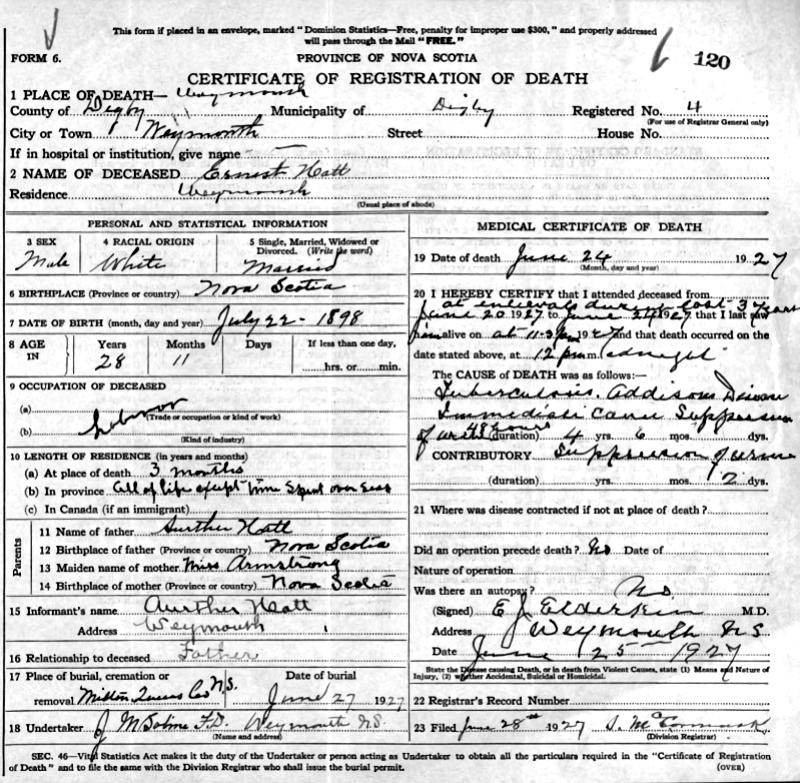 This form if placed in an envelope, marked "Dominion Statistics—Free, penalty for improper use $300," and properly addressed
will pass through the Mail "FREE."
FORM 6.
PROVINCE OF NOVA SCOTIA
120
CERTIFICATE OF REGISTRATION OF DEATH
1 PLACE OF DEATH— Weymouth
County of Digby Municipality of Digby Registered No. 4
(For use of Registrar General only)
City or Town Weymouth Street House No.
If in hospital or institution, give name —
2 NAME OF DECEASED Ernest Hatt
Residence Weymouth
(Usual place of abode)
PERSONAL AND STATISTICAL INFORMATION
3 SEX 4 RACIAL ORIGIN 5 Single, Married, Widowed or
Divorced. (Write the word)
Male White Married
6 BIRTHPLACE (Province or country) Nova Scotia
7 DATE OF BIRTH (month, day and year) July 22 - 1898
8 AGE IN Years Months Days If less than one day,
28 11 hrs. or min.
9 OCCUPATION OF DECEASED
(a)
(Trade or occupation or kind of work)
(b) Laborer
(Kind of industry)
10 LENGTH OF RESIDENCE (in years and months)
(a) At place of death 3 months
(b) In province All of life except time Spent over Seas
(c) In Canada (if an immigrant)
Parents
11 Name of father Aurther Hatt
12 Birthplace of father (Province or country) Nova Scotia
13 Maiden name of mother Miss Armstrong
14 Birthplace of mother (Province or country) Nova Scotia
15 Informant's name Aurther Hatt
Address Weymouth
16 Relationship to deceased Father
17 Place of burial, cremation or Date of burial
removal Milton Queens Co N.S. June 27 1927
18 Undertaker J M F.D. Weymouth N.S.
(Name and address)
MEDICAL CERTIFICATE OF DEATH
19 Date of death June 24 1927
(Month, day and year)
20 I HEREBY CERTIFY that I attended deceased from
at intervals during last 3 years
June 20 1927 to June 24 1927 that I last saw
him alive on at 11.30 pm 1927 and that death occurred on the
date stated above, at 12 pm m.
The CAUSE of DEATH was as follows:—
Tuberculosis. Addisons Disease
Immediate Cause Suppression
of urine 48 hours (duration) 4 yrs. 6 mos. dys.
CONTRIBUTORY Suppression of urine
(duration) yrs. mos. 2 dys.
21 Where was disease contracted if not at place of death?
Did an operation precede death? No Date of
Nature of operation
Was there an autopsy? No
(Signed) E J Elderkin M.D.
Address Weymouth N.S.
Date June 25th 1927
State the Disease causing Death, or in death from Violent Causes, state (1) Means and Nature of
Injury, (2) whether Accidental, Suicidal or Homicidal.
22 Registrar's Record Number
23 Filed June 28th 1927 S. McCormack
(Division Registrar)
SEC. 46—Vital Statistics Act makes it the duty of the Undertaker or person acting as Undertaker to obtain all the particulars required in the "Certificate of Registration
of Death" and to file the same with the Division Registrar who shall issue the burial permit. (OVER)